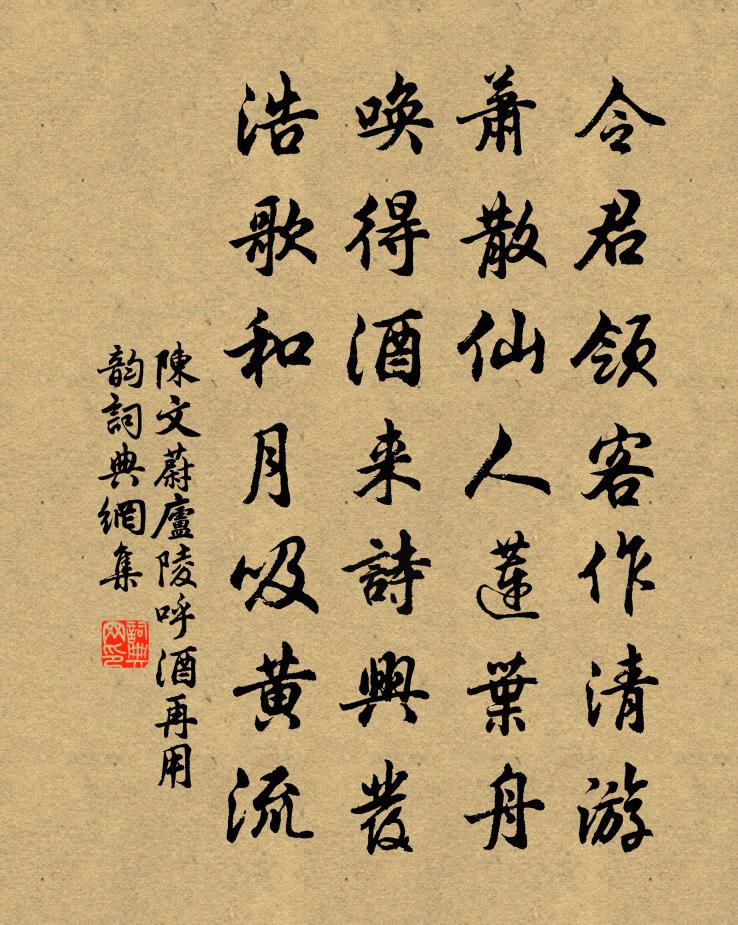 令君領客作清游
蕭散仙人蓮葉舟
喚得酒来詩興發
浩歌和月吸黄流
陳文蔚廬陵呼酒再用
韵詞典網集
詞典
网印